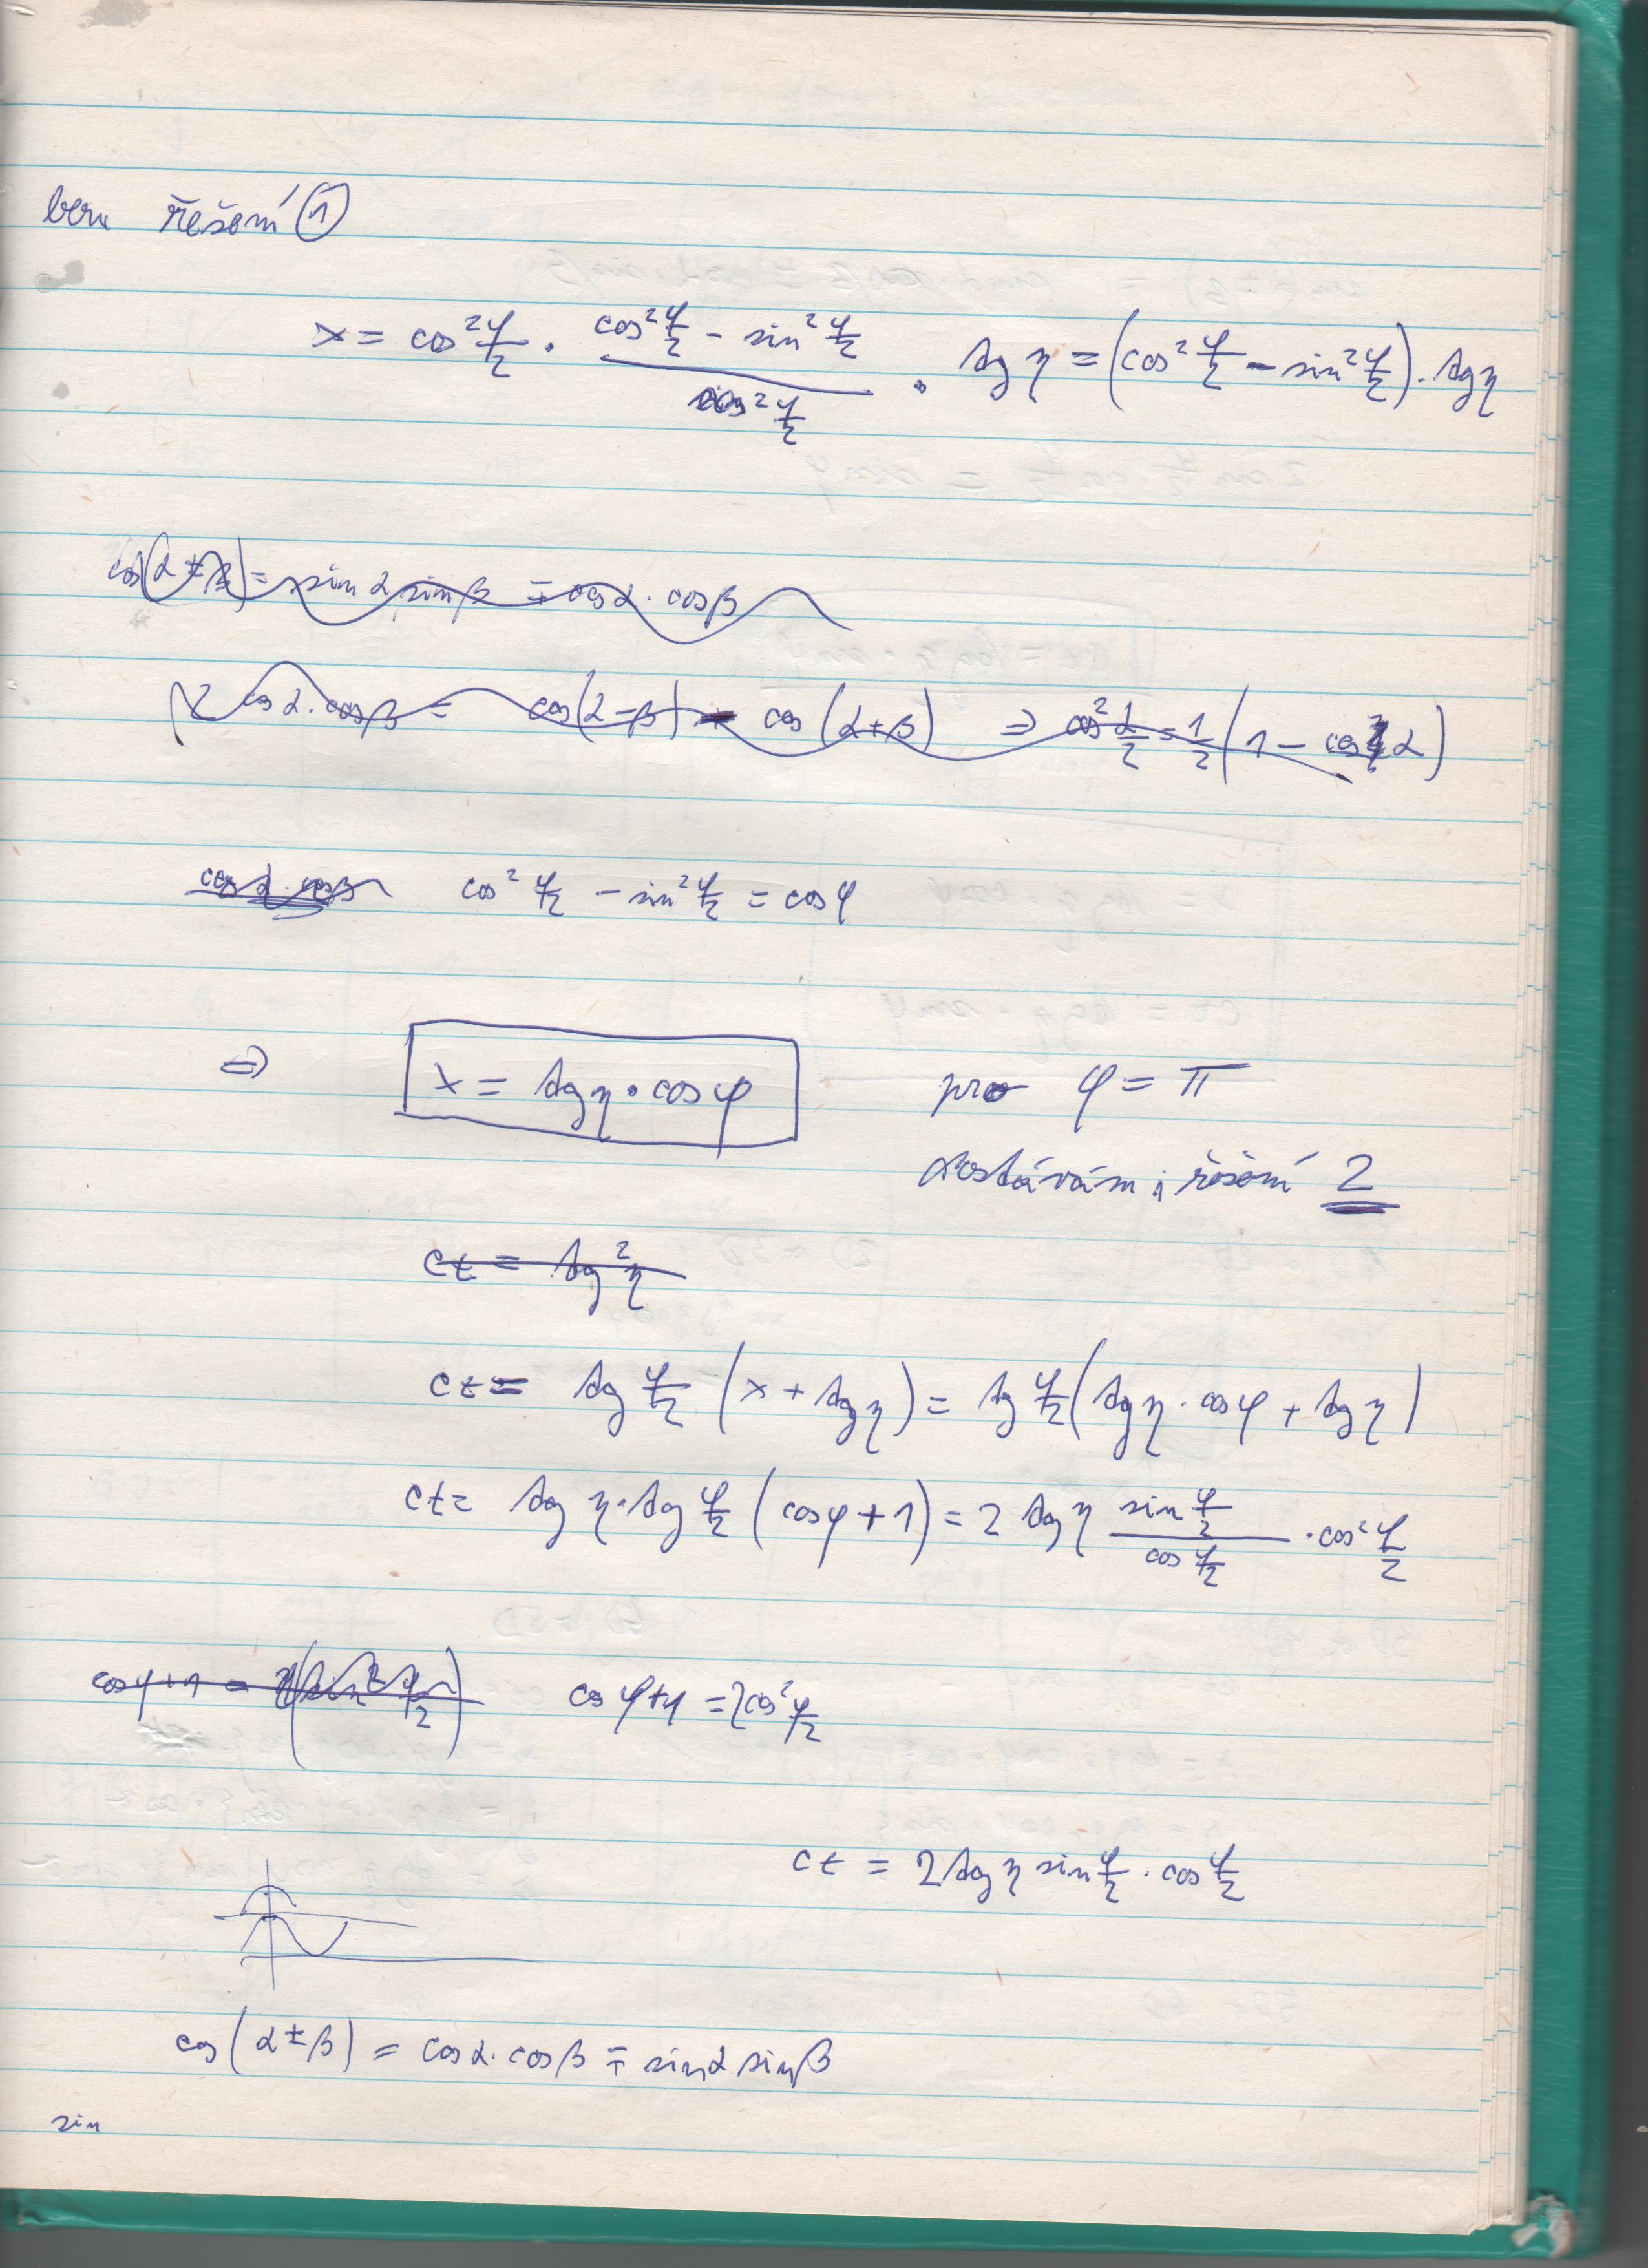 beru řešení ①
x = cos² φ/2 · (cos² φ/2 − sin² φ/2) / (cos² φ/2) · tg η = (cos² φ/2 − sin² φ/2) · tg η
cos(α ± β) = sin α sin β ∓ cos α · cos β
2 cos α · cos β = cos(α − β) − cos(α + β) ⇒ cos² α/2 = 1/2 (1 − cos α)
cos α · cos β cos² φ/2 − sin² φ/2 = cos φ
⇒ x = tg η · cos φ pro φ = π
dostávám i řešení 2
ct = tg² η
ct = tg φ/2 (x + tg η) = tg φ/2 (tg η · cos φ + tg η)
ct = tg η · tg φ/2 (cos φ + 1) = 2 tg η (sin φ/2) / (cos φ/2) · cos² φ/2
cos φ + 1 = cos φ + 1 = 2 cos² φ/2
ct = 2 tg η sin φ/2 · cos φ/2
cos(α ± β) = cos α · cos β ∓ sin α sin β
sin